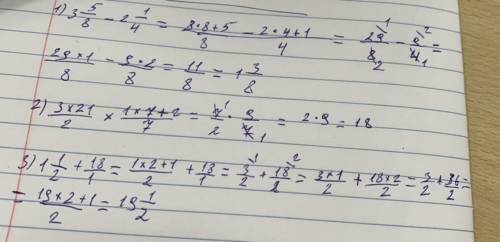 1) 3 5/8 - 2 1/4 = 8*8+5/8 - 2*4+1/4 = 29/8 - 9/4 =
29*1/8 - 9*2/8 = 11/8 = 1 3/8
2) 3*21/2 × 1*7+2/7 = 7/2 * 9/7 = 2*9 = 18
3) 1 1/2 + 18/1 = 1×2+1/2 + 18/1 = 3/2 + 18/2 = 3×1/2 + 18×2/2 = 3/2 + 36/2 =
= 19×2+1/2 = 19 1/2